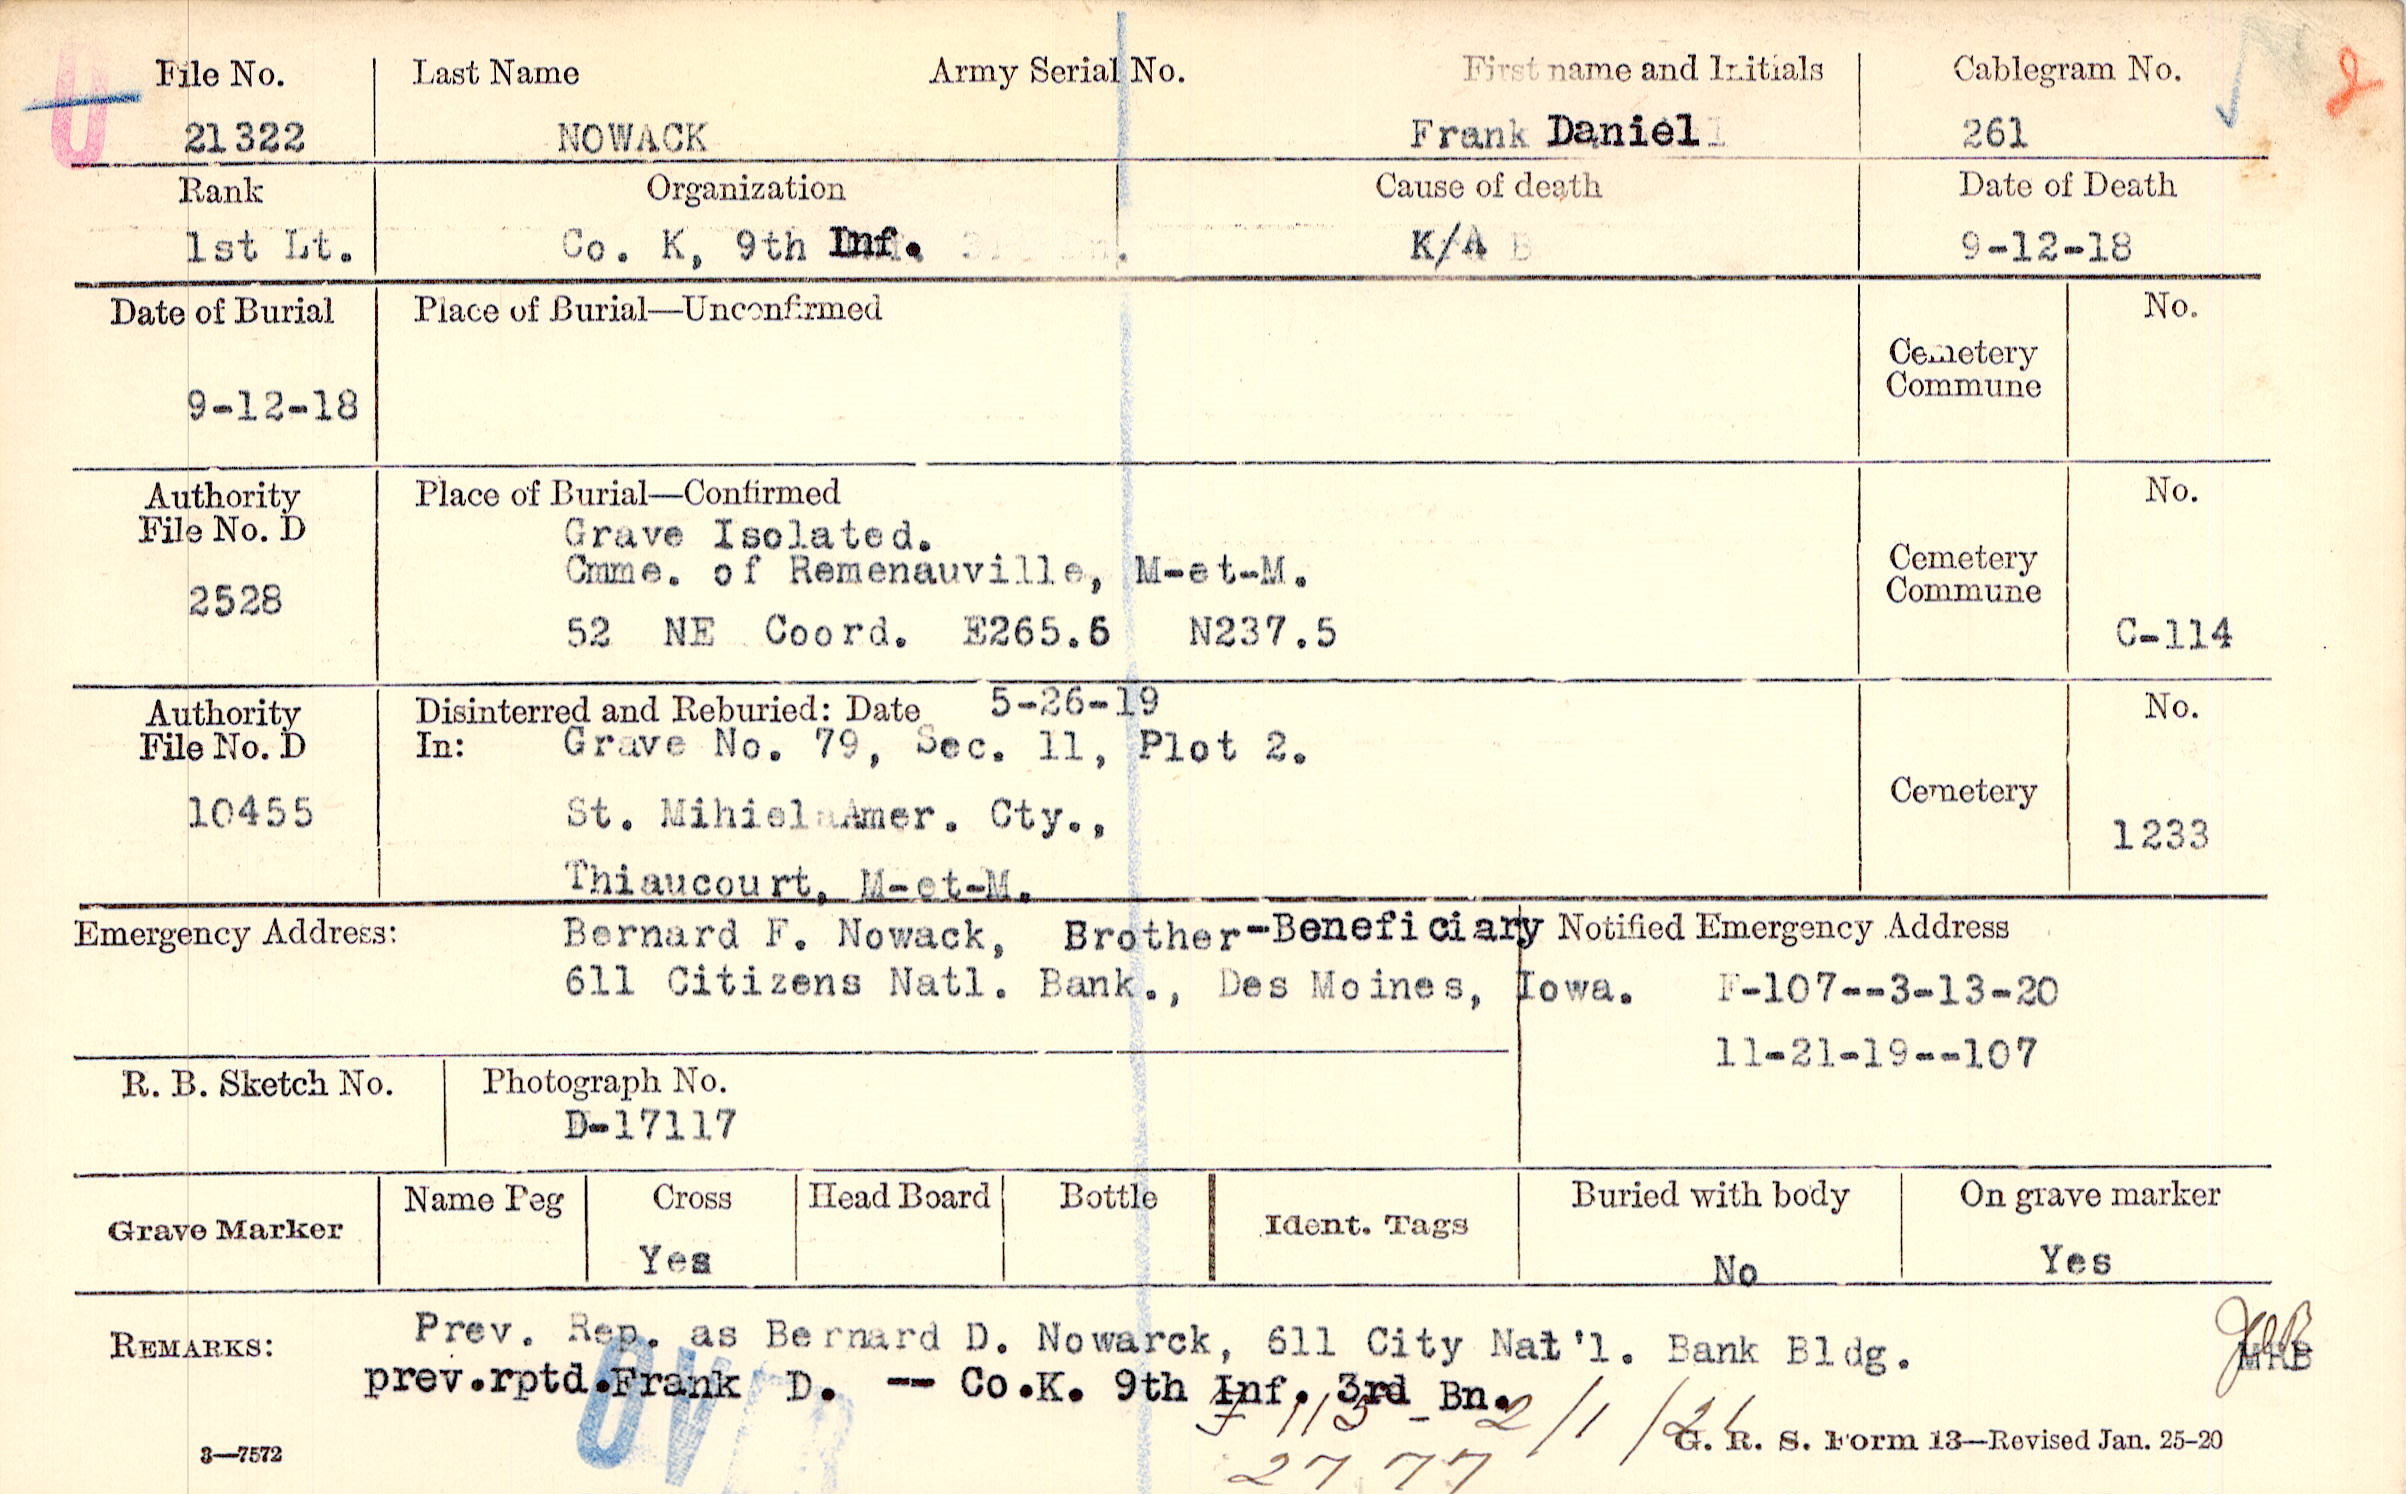 File No. Last Name Army Serial No. First name and Initials Cablegram No. 2
21322 NOWACK Frank Daniel 261
Rank Organization Cause of death Date of Death
1st Lt. Co. K, 9th Inf. K/A 9-12-18
Date of Burial Place of Burial—Unconfirmed No.
Cemetery
Commune
9-12-18
Authority Place of Burial—Confirmed No.
File No. D Grave Isolated.
Cmme. of Remenauville, M-et-M. Cemetery
2528 Commune
52 NE Coord. E265.6 N237.5 C-114
Authority Disinterred and Reburied: Date 5-26-19 No.
File No. D In: Grave No. 79, Sec. 11, Plot 2.
Cemetery
10455 St. Mihiel Amer. Cty., 1233
Thiaucourt, M-et-M.
Emergency Address: Bernard F. Nowack, Brother-Beneficiary Notified Emergency Address
611 Citizens Natl. Bank., Des Moines, Iowa. F-107--3-13-20
11-21-19--107
R. B. Sketch No. Photograph No.
D-17117
Grave Marker Name Peg Cross Head Board Bottle Ident. Tags Buried with body On grave marker
Yes No Yes
REMARKS: Prev. Rep. as Bernard D. Nowarck, 611 City Nat'l. Bank Bldg. MRB
prev.rptd.Frank D. -- Co.K. 9th Inf. 3rd Bn.
OVER
3—7572 G. R. S. Form 13—Revised Jan. 25-20
2777